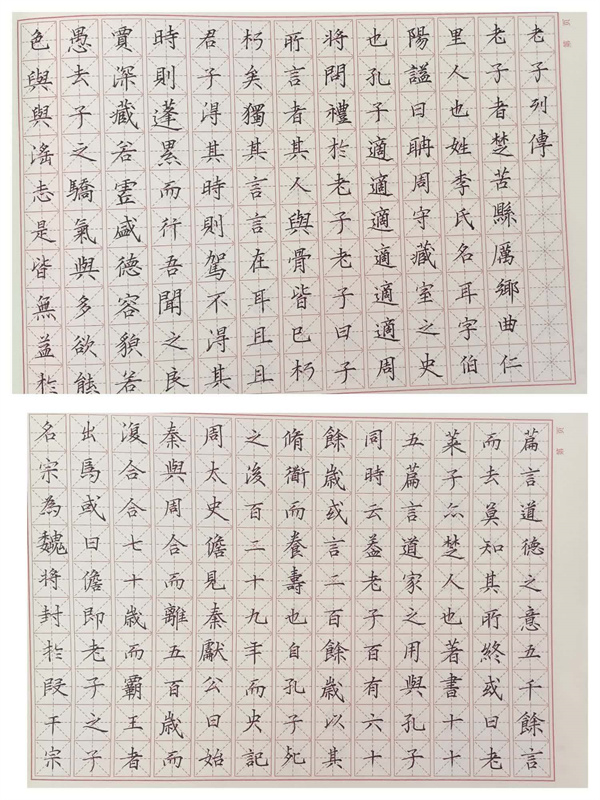 老子列傳
老子者楚苦縣厲鄉曲仁
里人也姓李氏名耳字伯
陽謚曰聃周守藏室之史
也孔子適適適適適適周
將問禮於老子老子曰子
所言者其人與骨皆已朽
朽矣獨其言言在耳且且
君子得其時則駕不得其
時則蓬累而行吾聞之良
賈深藏若虛盛德容貌若
愚去子之驕氣與多欲態
色與與滛志是皆無益於
篇言道德之意五千餘言
而去莫知其所終或曰老
萊子亦楚人也著書十十
五篇言道家之用與孔子
同時云蓋老子百有六十
餘歲或言二百餘歲以其
脩衜而養壽也自孔子死
之後百二十九年而史記
周太史儋見秦獻公曰始
秦與周合而離五百歲而
復合合七十歲而霸王者
出焉或曰儋即老子之子
名宗為魏將封於段干宗